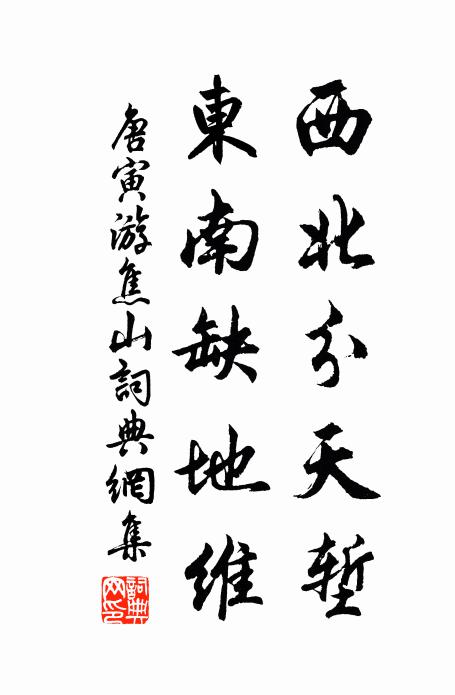 西北分天塹
東南缺地維
唐寅游焦山詞典網集
詞典网印